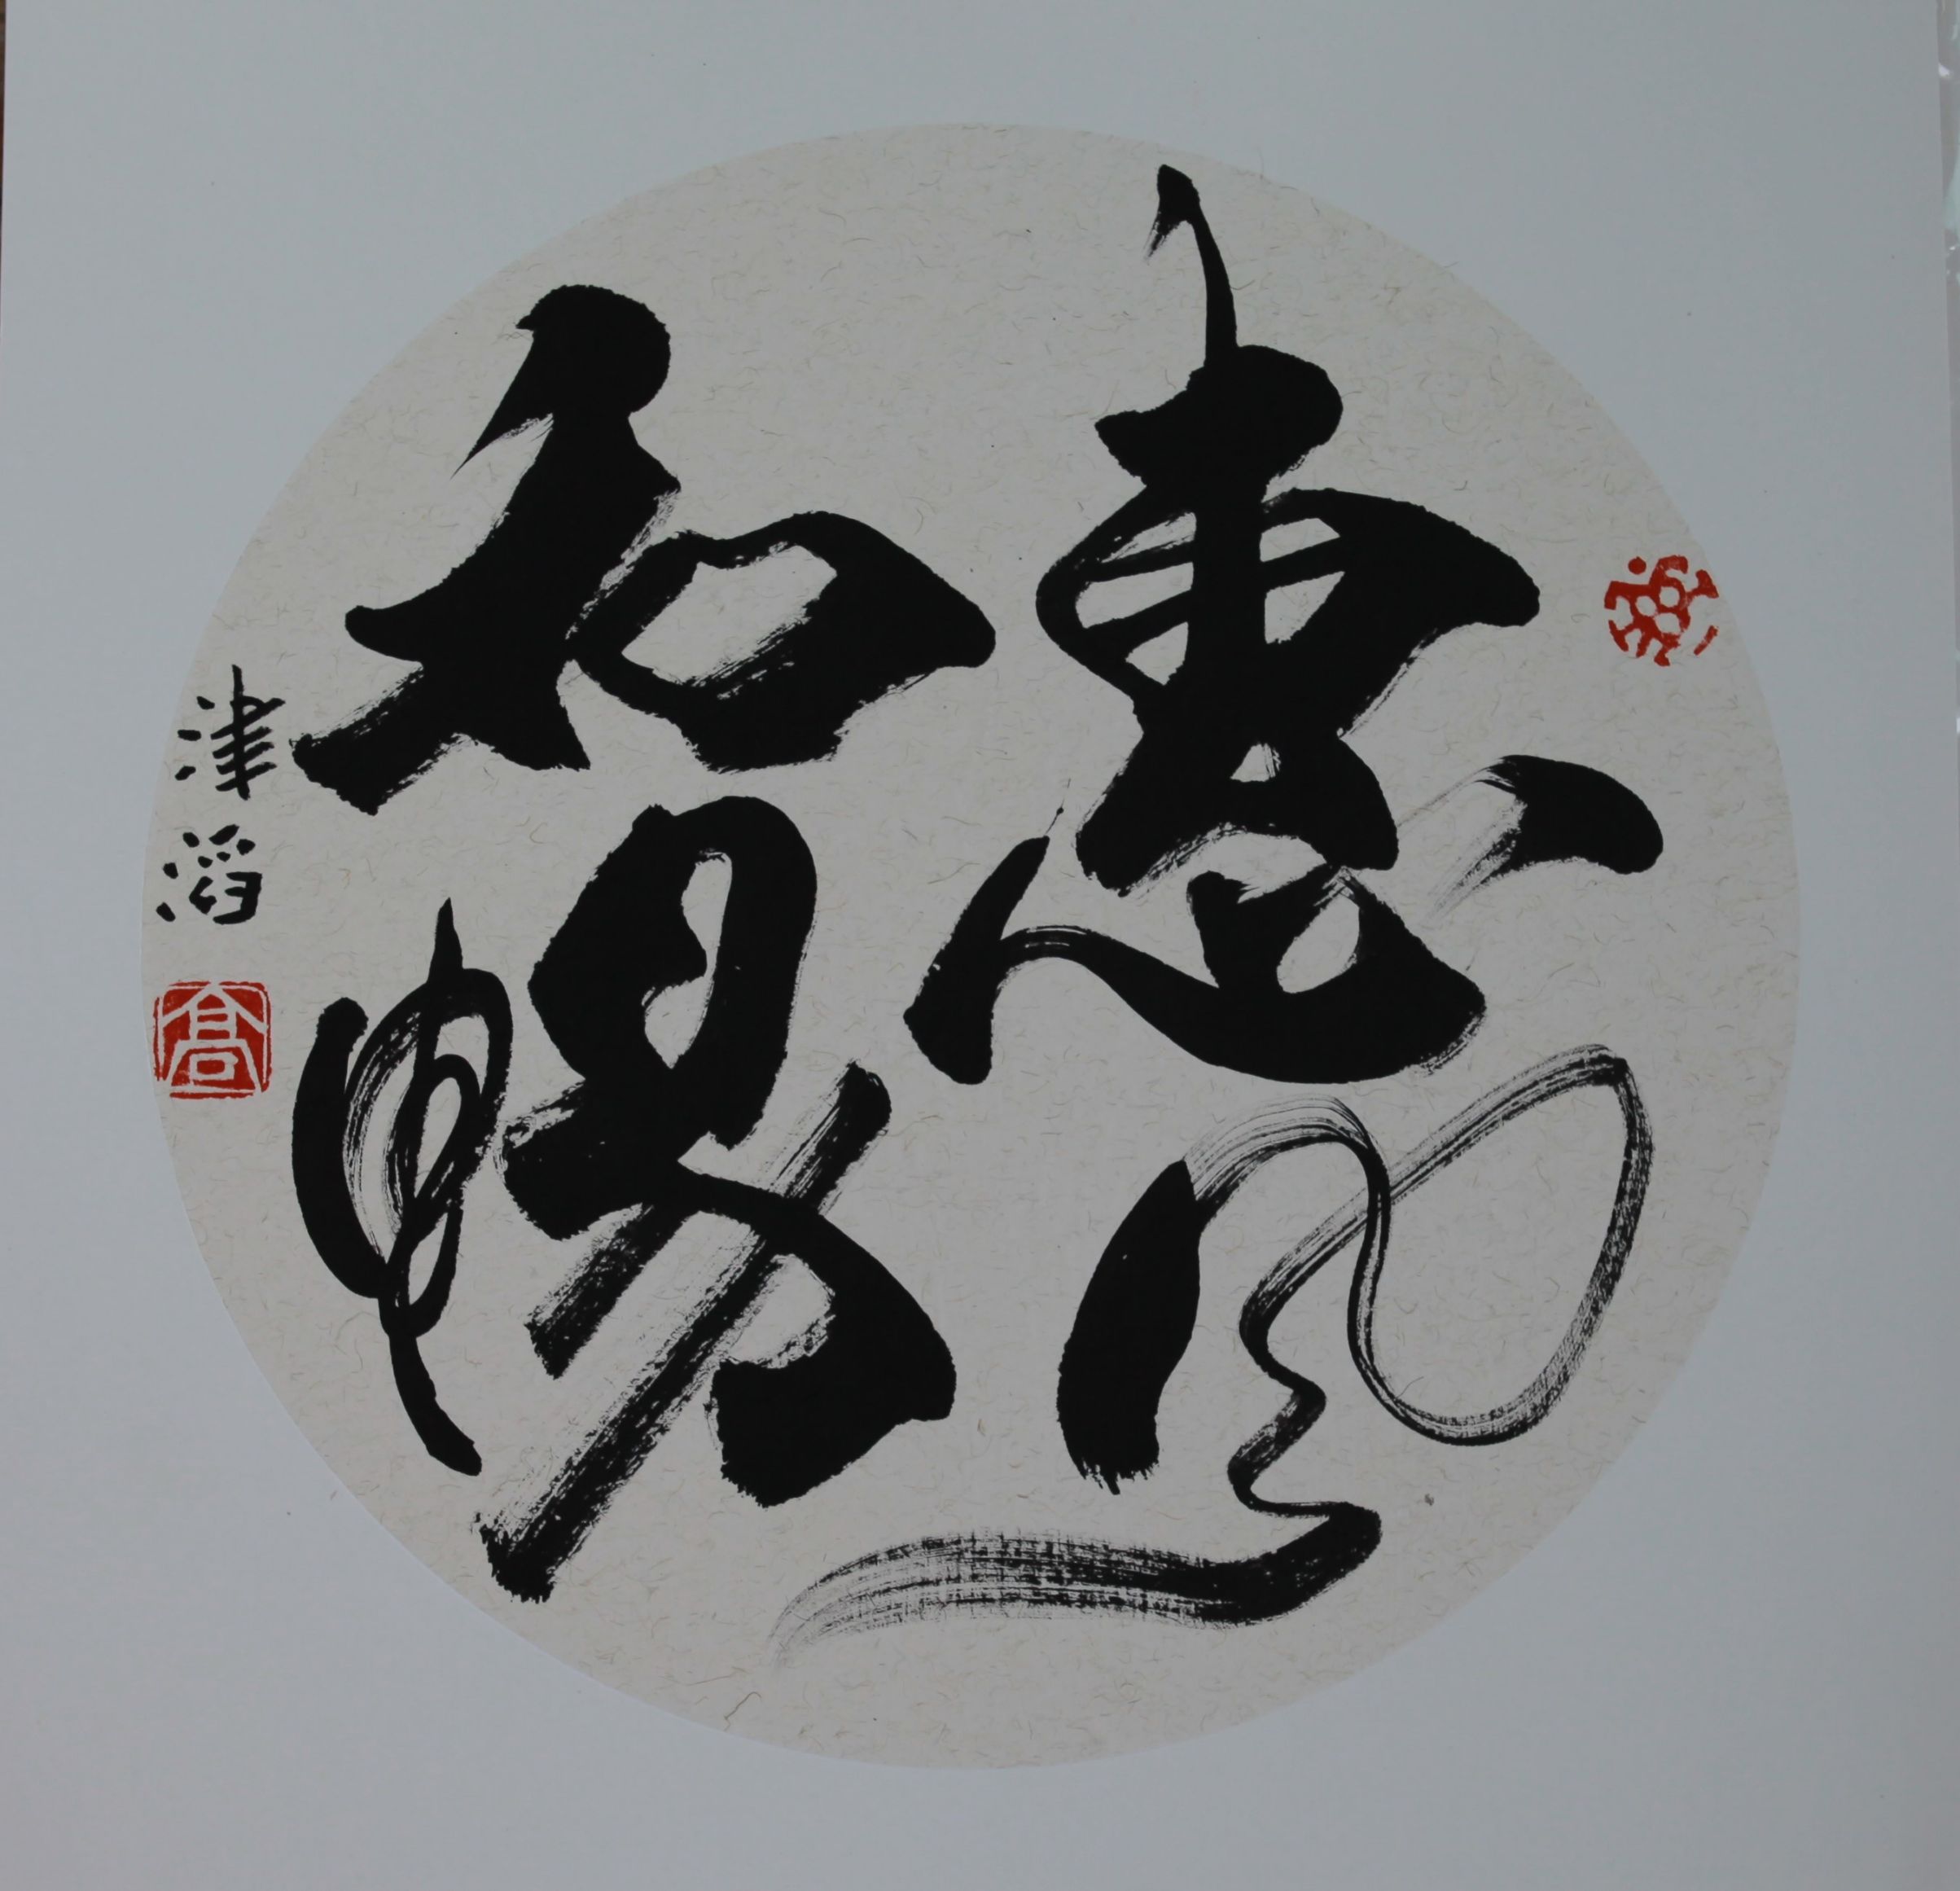 惠風
和暢
津滔
高